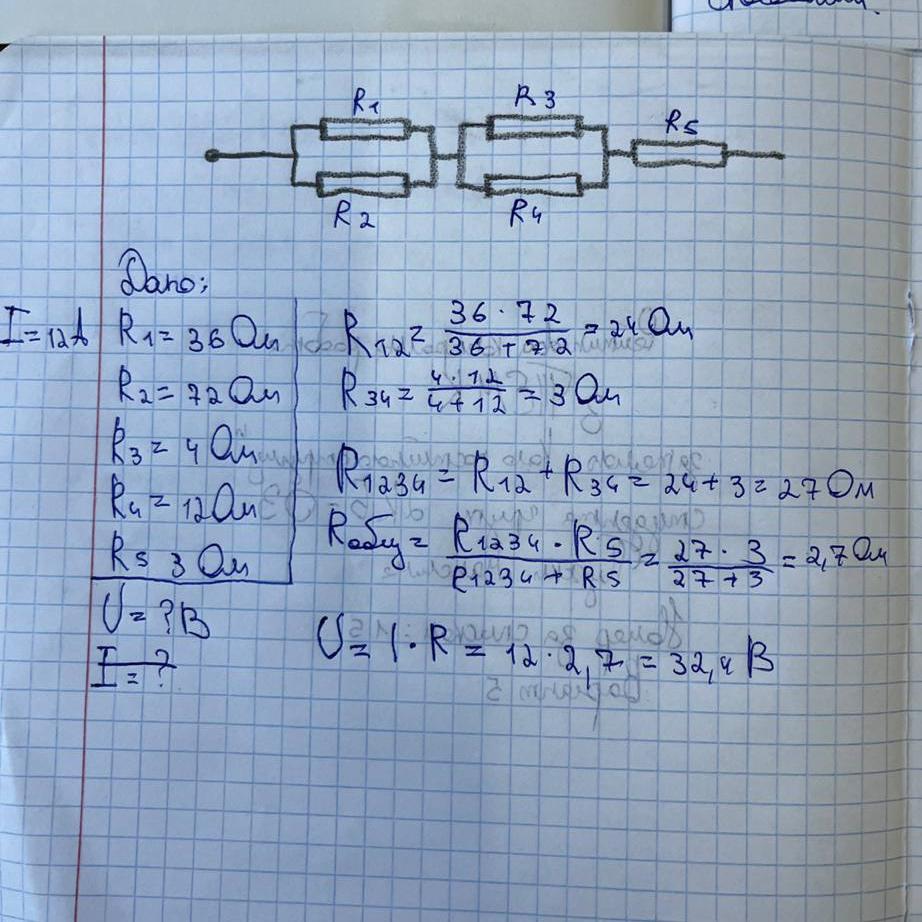 R1
R3
R5
R2
R4
Дано:
I = 12A
R1 = 36 Ом
R2 = 72 Ом
R3 = 4 Ом
R4 = 12 Ом
R5 3 Ом
U = ? В
I = ?
R12 = 36 · 72 / 36 + 72 = 24 Ом
R34 = 4 · 12 / 4 + 12 = 3 Ом
R1234 = R12 + R34 = 24 + 3 = 27 Ом
Rобщ = R1234 · R5 / R1234 + R5 = 27 · 3 / 27 + 3 = 2,7 Ом
U = I · R = 12 · 2,7 = 32,4 В